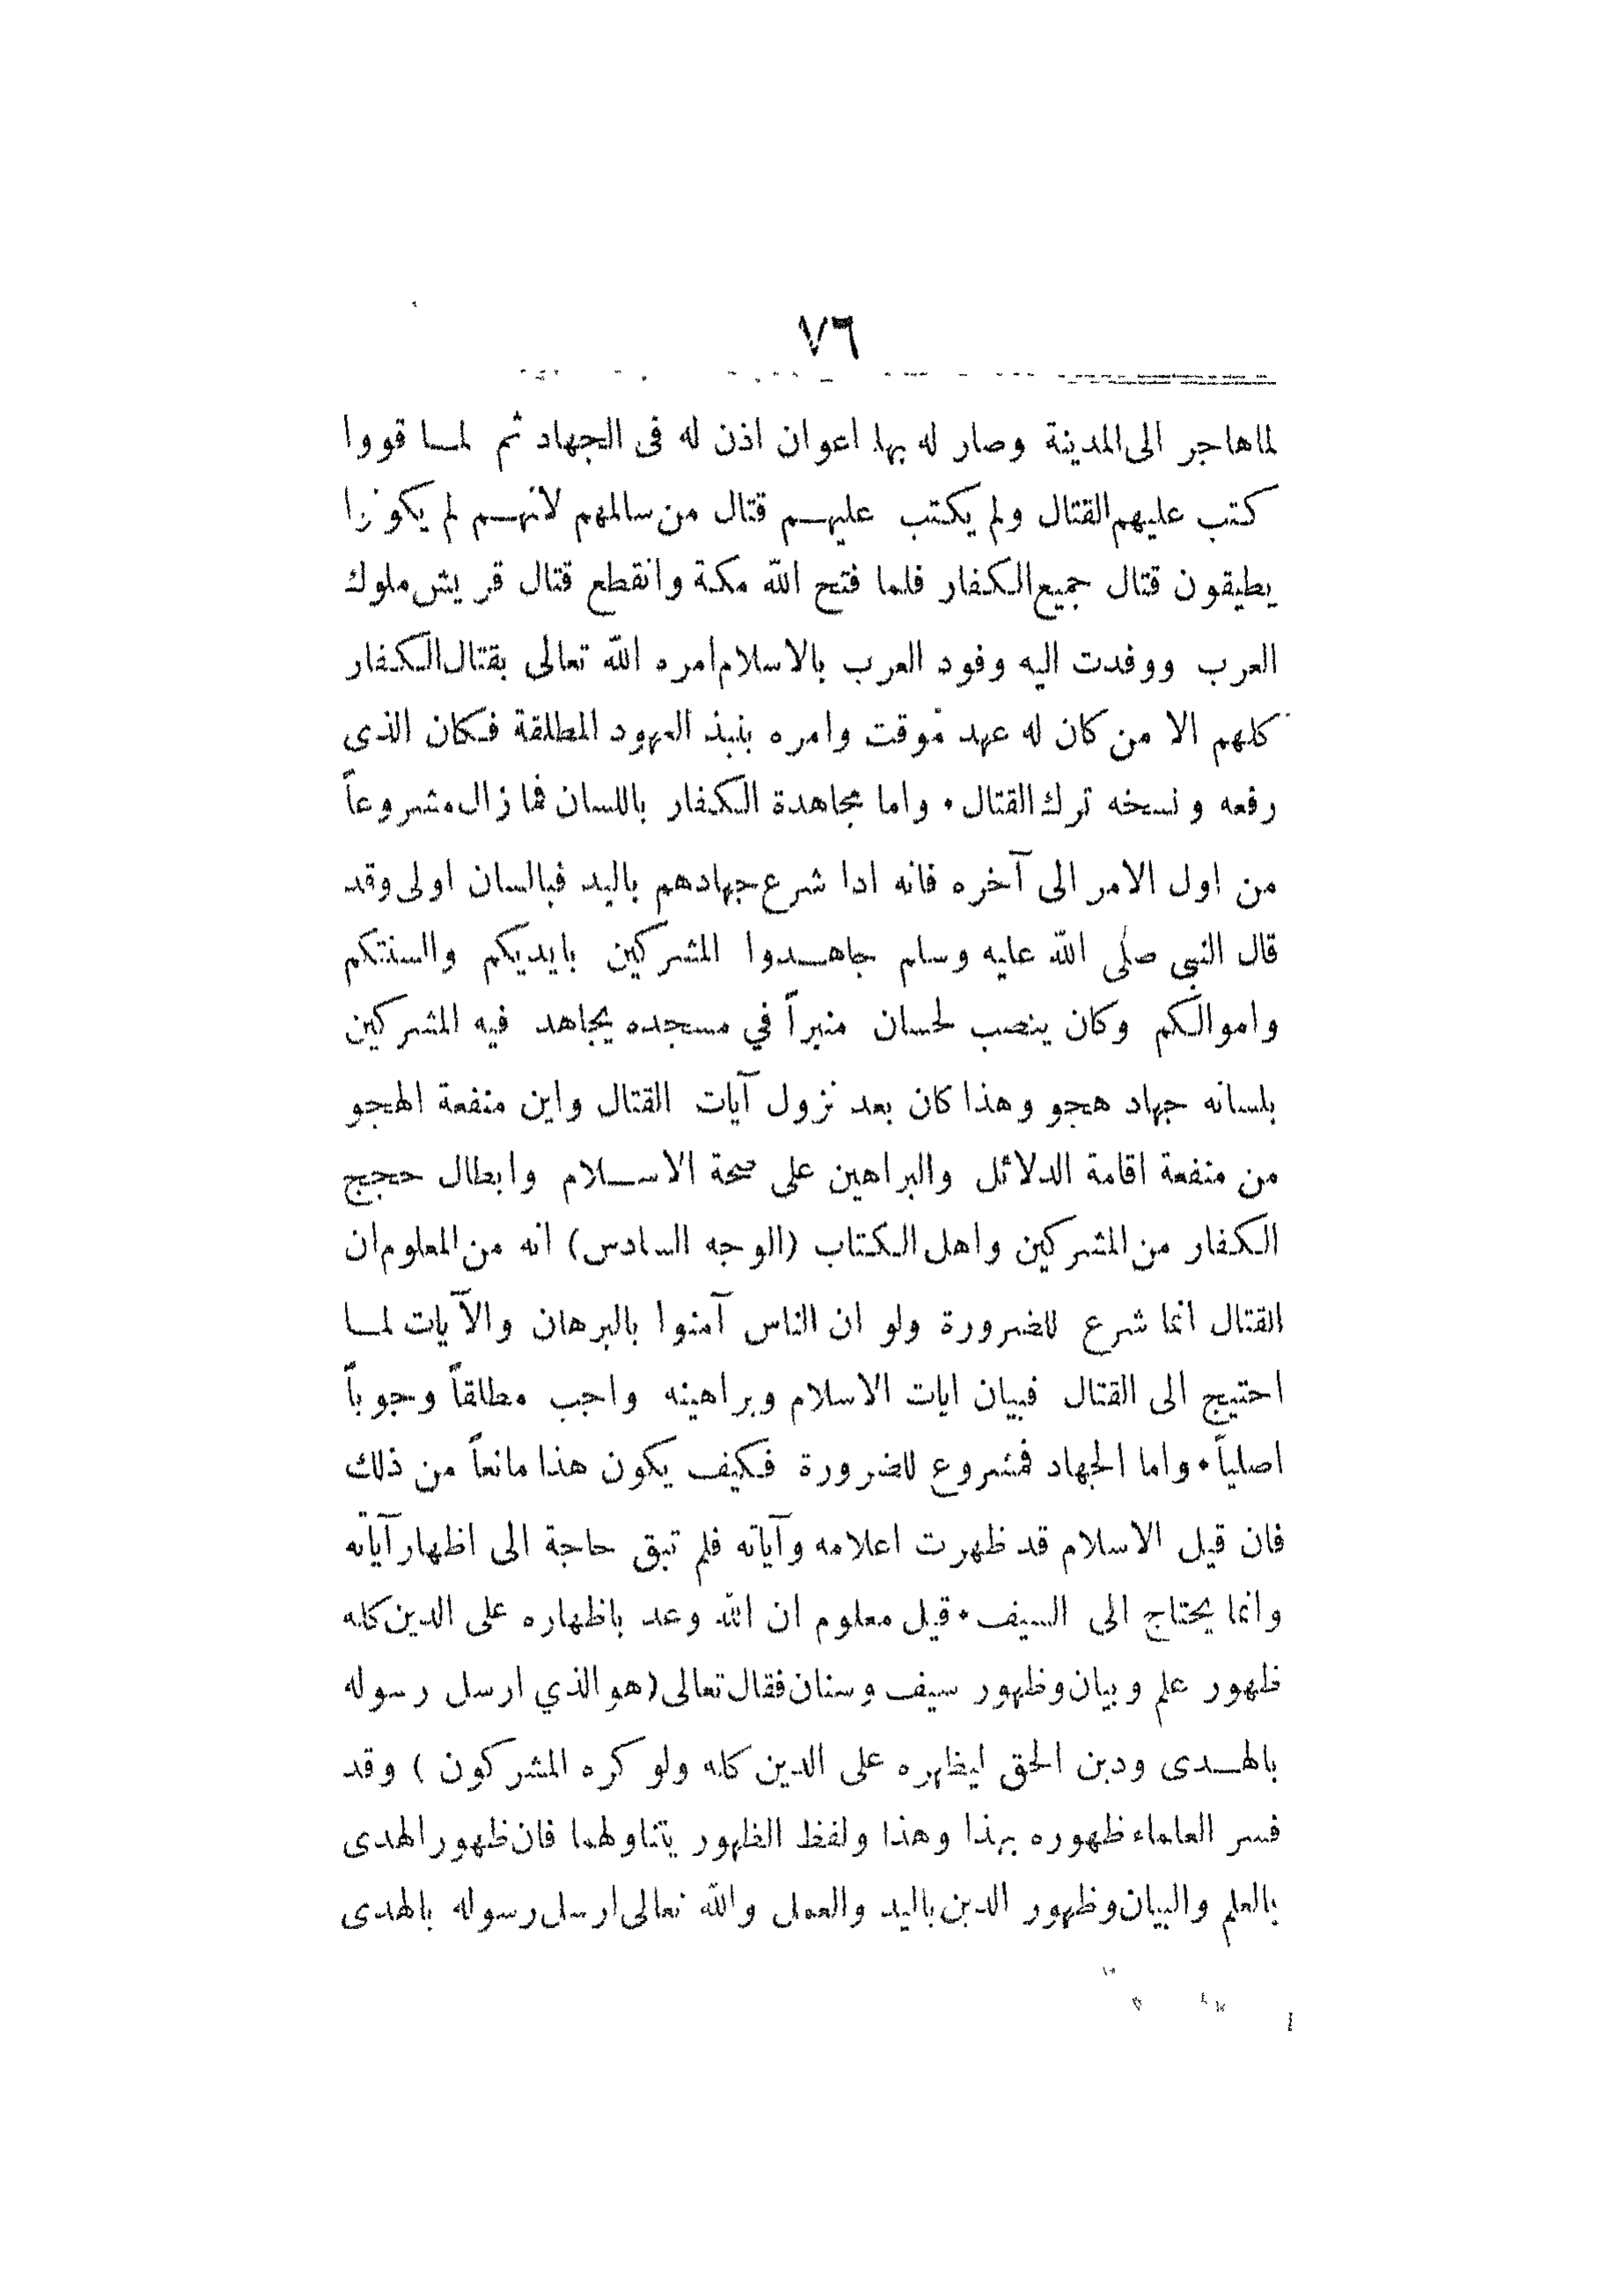 ٧٦
لما هاجر الى المدينة وصار له بها اعوان اذن له فى الجهاد ثم لمـا قووا
كتب عليهم القتال ولم يكتب عليهـم قتال من سالمهم لانهـم لم يكونوا
يطيقون قتال جميع الكفار فلما فتح الله مكة وانقطع قتال قريش ملوك
العرب ووفدت اليه وفود العرب بالاسلام امره الله تعالى بقتال الكفار
كلهم الا من كان له عهد موقت وامره بنبذ العهود المطلقة فكان الذى
رفعه ونسخه ترك القتال • واما مجاهدة الكفار باللسان فما زال مشروعاً
من اول الامر الى آخره فانه ادا شرع جهادهم باليد فبالسان اولى وقد
قال النبي صلى الله عليه وسلم جاهـدوا المشركين بايديكم والسنتكم
واموالكم وكان ينصب لحسان منبراً في مسجده يجاهد فيه المشركين
بلسانه جهاد هجو وهذا كان بعد نزول آيات القتال واين منفعة الهجو
من منفعة اقامة الدلائل والبراهين على صحة الاسـلام وابطال حجج
الكفار من المشركين واهل الكتاب (الوجه السادس) انه من المعلوم ان
القتال انما شرع للضرورة ولو ان الناس آمنوا بالبرهان والآيات لمـا
احتيج الى القتال فبيان ايات الاسلام وبراهينه واجب مطلقاً وجوباً
اصلياً • واما الجهاد فمشروع للضرورة فكيف يكون هذا مانعاً من ذلك
فان قيل الاسلام قد ظهرت اعلامه وآياته فلم تبق حاجة الى اظهار آياته
وانما يحتاج الى السيف • قيل معلوم ان الله وعد باظهاره على الدين كله
ظهور علم وبيان وظهور سيف وسنان فقال تعالى (هو الذي ارسل رسوله
بالهـدى ودين الحق ليظهره على الدين كله ولو كره المشركون) وقد
فسر العلماء ظهوره بهذا وهذا ولفظ الظهور يتناولهما فان ظهور الهدى
بالعلم والبيان وظهور الدين باليد والعمل والله تعالى ارسل رسوله بالهدى